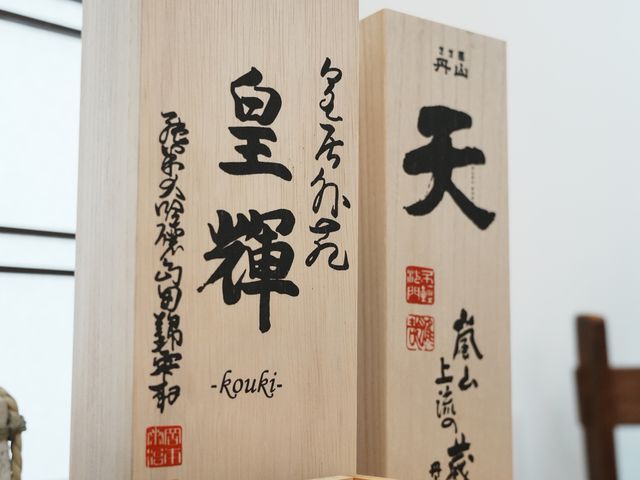 皇居外苑
皇輝
-kouki-
純米大吟醸山田錦雫取
丹山
天
嵐山
上流の
蔵
丹